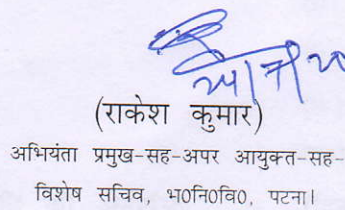 (राकेश कुमार)
अभियंता प्रमुख-सह-अपर आयुक्त-सह-
विशेष सचिव, भ0नि0वि0, पटना।